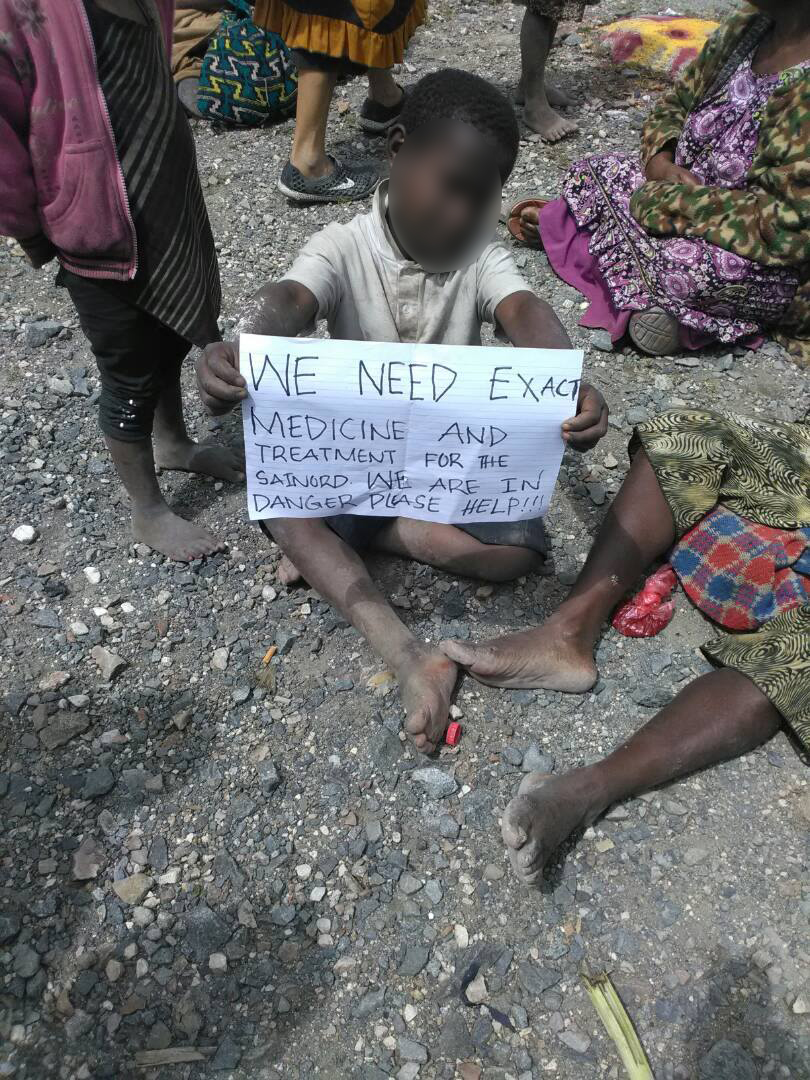 WE NEED EXACT
MEDICINE AND
TREATMENT FOR THE
SAINORD. WE ARE IN
DANGER PLEASE HELP!!!